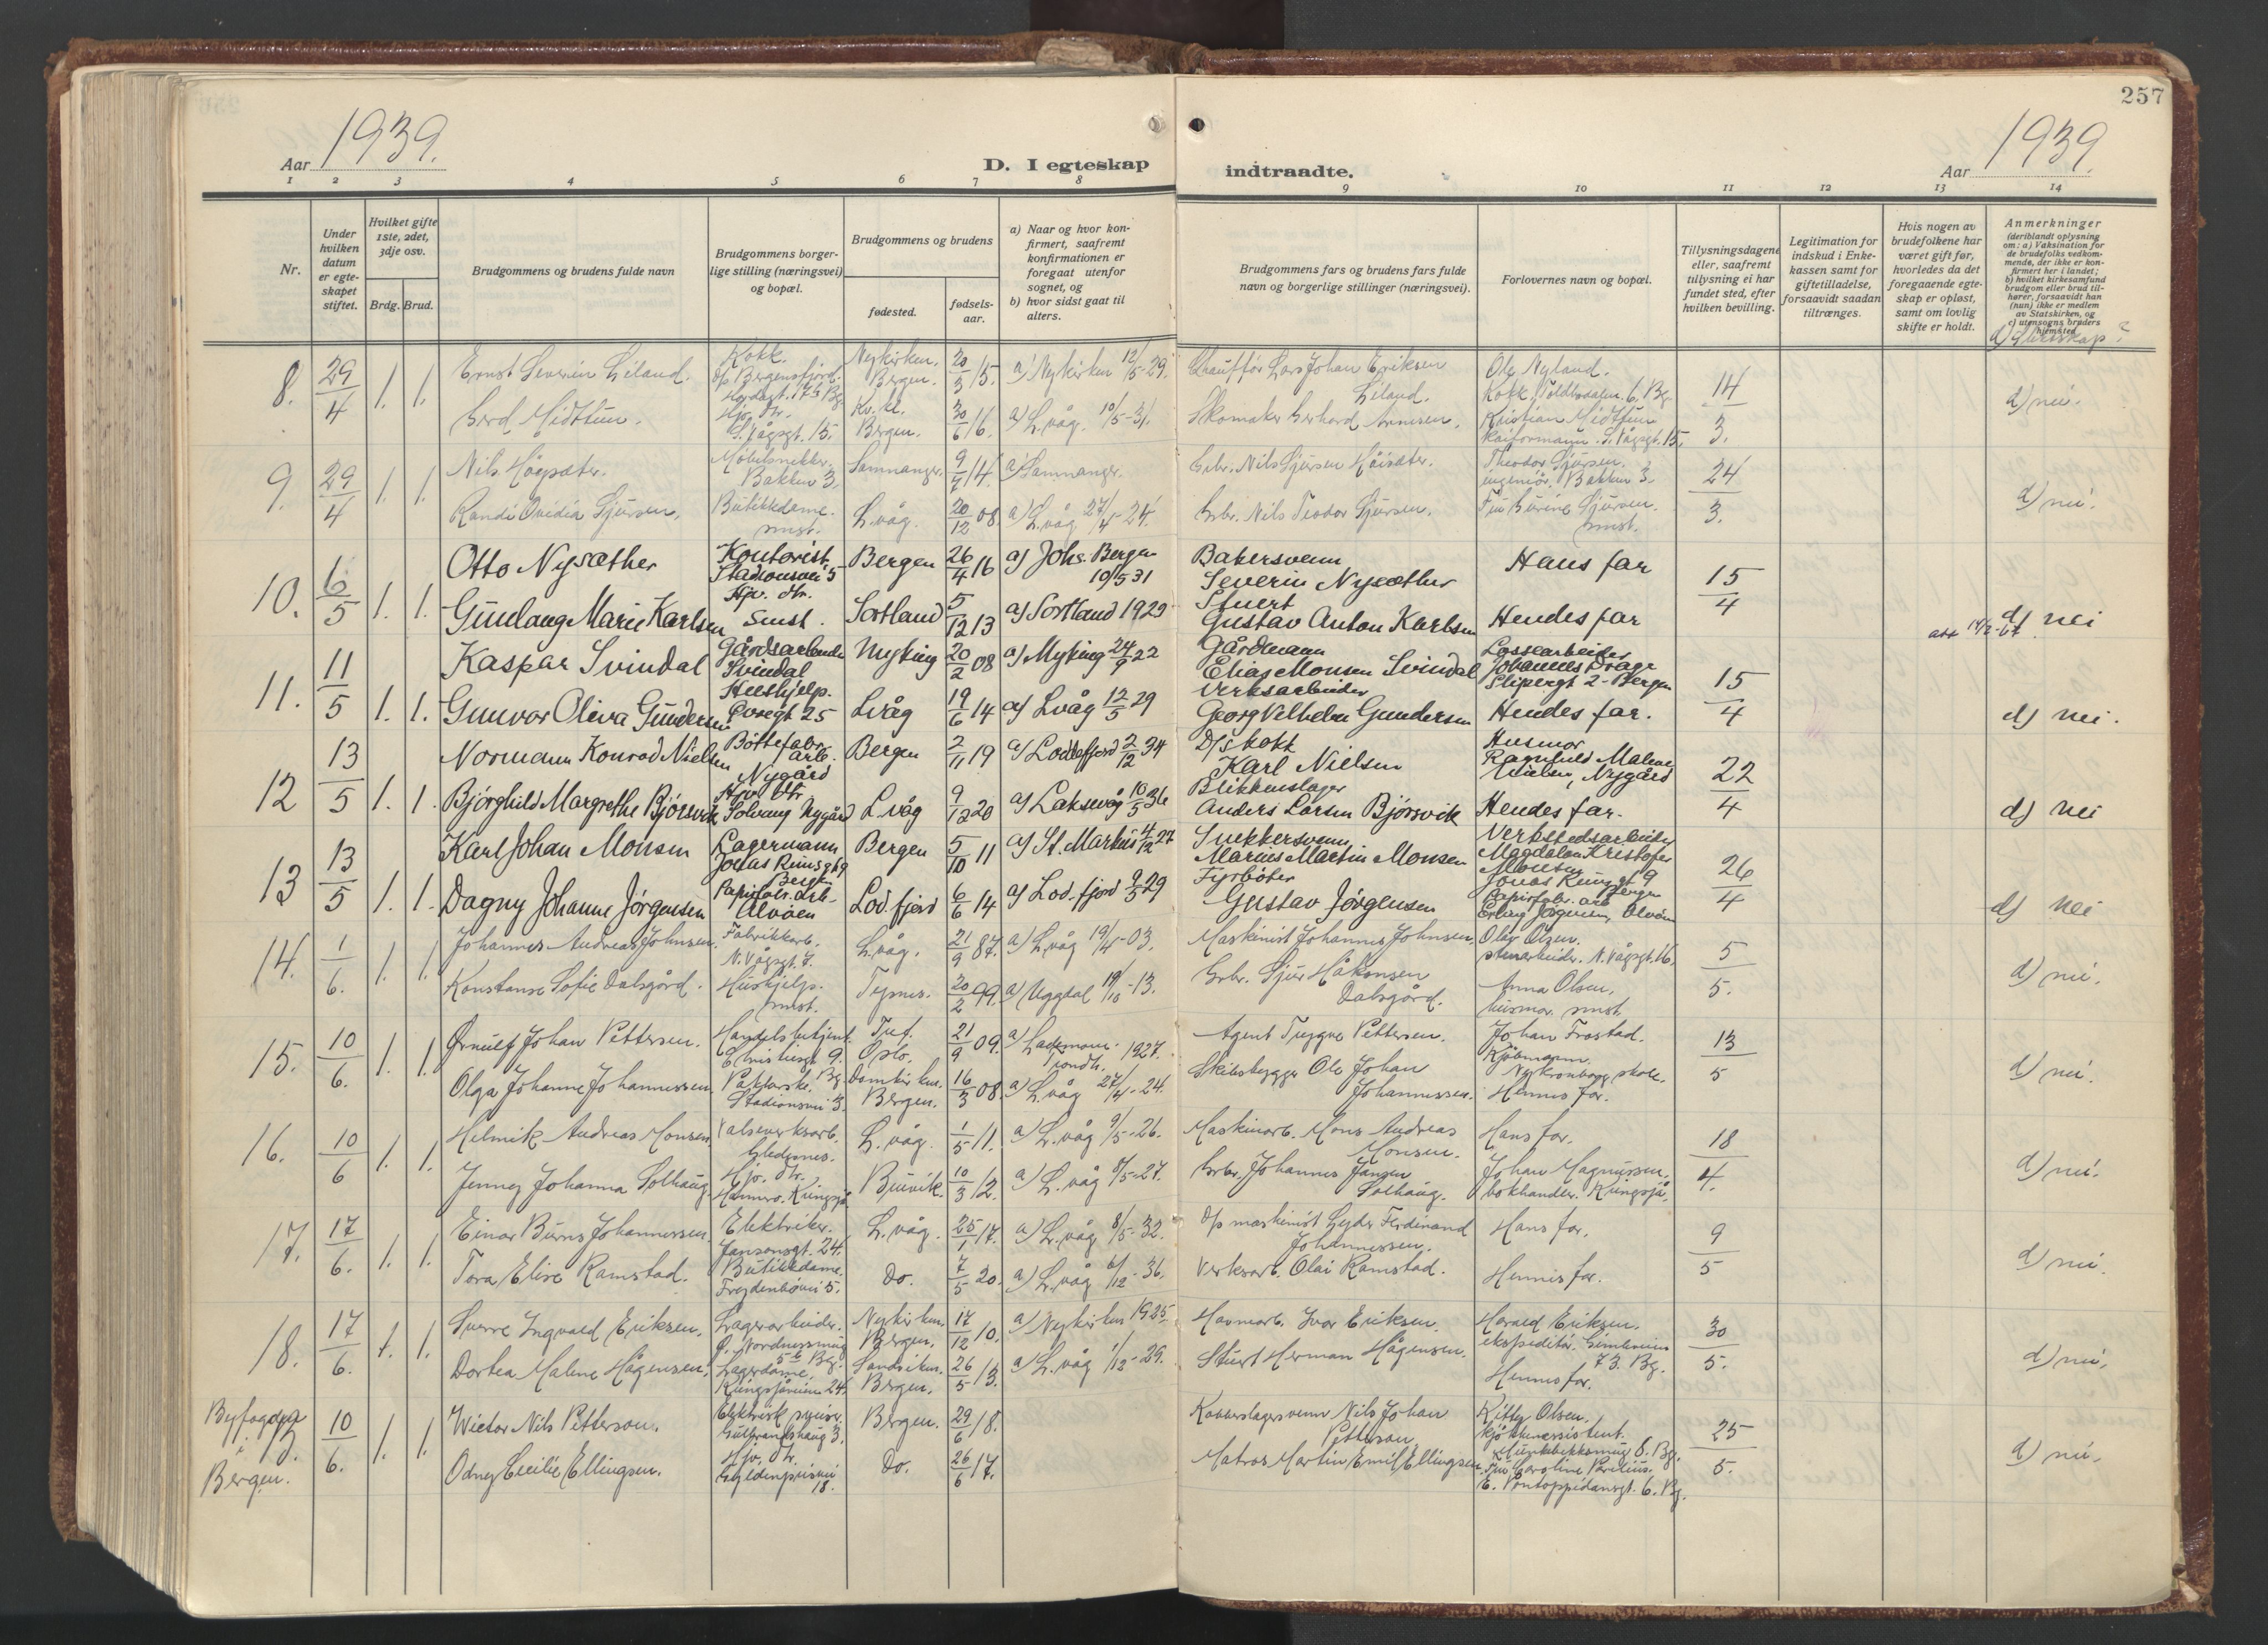 257
Aar 1939.
D. I egteskap
indtraadte.
Aar 1939.
1 2 3 4 5 6 7 8 9 10 11 12 13 14
Nr.
Under hvilken datum er egteskapet stiftet.
Hvilket gifte 1ste, 2det, 3dje osv.
Brdg. Brud.
Brudgommens og brudens fulde navn
Brudgommens borgerlige stilling (næringsvei) og bopæl.
Brudgommens og brudens
fødested.
fødselsaar.
a) Naar og hvor konfirmert, saafremt konfirmationen er foregaat utenfor sognet, og
b) hvor sidst gaat til alters.
Brudgommens fars og brudens fars fulde navn og borgerlige stillinger (næringsvei).
Forlovernes navn og bopæl.
Tillysningsdagene eller, saafremt tillysning ei har fundet sted, efter hvilken bevilling.
Legitimation for indskud i Enkekassen samt for giftetilladelse, forsaavidt saadan tiltrænges.
Hvis nogen av brudefolkene har været gift før, hvorledes da det foregaaende egteskap er opløst, samt om lovlig skifte er holdt.
Anmerkninger (deriblandt oplysning om: a) Vaksination for de brudefolks vedkommende, der ikke er konfirmert her i landet; b) hvilket kirkesamfund brudgom eller brud tilhører, forsaavidt han (hun) ikke er medlem av Statskirken, og c) utensogns bruders hjemsted
8. 29/4 1. 1. Ernst Severin Liland. Kokk. Nykirken. Bergen. 20/3 15. a) Nykirken 12/5-29. Chauffør Lars Johan Eriksen Liland. Ole Nyland. Kokk 14/3. d) nei.
Gerd Midttun. Hjv. dtr. S. Vågsgt. 15. Kv.kl. Bergen. 30/6 16. a) L.våg. 10/5-31. Skomaker Gerhard Arnesen. Kristian Midttun kaiformann. S. Vågsgt. 15.
9. 29/4 1. 1. Nils Høysæter. Møbelsnekker. Bakken 3. Samnanger. 9/7 14. a) Samnanger. Grbr. Nils Sjursen Høisæter. Theodor Sjursen. ingeniør. Bakken 3. 24/3. d) nei.
Randi Ovidia Sjursen. Butikkdame. smst. L.våg. 20/12 08. a) L.våg 27/4-24. Grbr. Nils Teodor Sjursen. smst.
10. 6/5 1. 1. Otto Nysæther Kontorist. Stadionsvei 5 Bergen 26/4 16 a) Johs. Bergen 10/5 31 Bakersvenn Severin Nysæther Hans far 15/4
Gunlaug Marie Karlsen Hjv. dtr. Smst. Sortland 5/12 13 a) Sortland 1929 Stuert Gustav Anton Karlsen Hendes far d) nei
11. 11/5 1. 1. Kaspar Svindal Gårdsarbeider Svindal Myking 20/2 08 a) Myking 24/9 22 Gårdmann Elias Monsen Svindal Lossearbeider Johannes Drage Slipergt 2 - Bergen 15/4
Gunvor Oliva Gundersen Hushjelp. 25 Lvåg 19/6 14 a) Lvåg 12/5 29 Verksarbeider Georg Vilhelm Gundersen Hendes far. d) nei.
12 13/5 1. 1. Normann Konrad Nielsen Bøttefabr. arb. Nygård Bergen 2/11 19 a) Loddefjord 2/12 34 D/s kokk Karl Nielsen Husmor Ragnhild Malene Nielsen, Nygård 22/4
Bjørghild Margrethe Bjørsvik Hjv. dtr. Solvang Nygård L.våg 9/12 20 a) Laksevåg 10/5 36 Blikkenslager Anders Larsen Bjørsvik Hendes far. d) nei
13 13/5 1. 1. Karl Johan Monsen Lagermann Jonas Reinsgt 9 Berg. Bergen 5/10 11 a) St. Markus 4/12 27 Snekkersvenn Marius Martin Monsen Verkstedsarbeider Magdalon Kristofer Monsen Jonas Reinsgt 9 Bergen 26/4
Dagny Johanne Jørgensen Papirfabr. arb. Alvøen Lod.fjord 6/6 14 a) Lod.fjord 9/5 29 Fyrbøter Gustav Jørgensen Papirfabr. arb. Erling Jørgensen, Alvøen d) nei
14. 1/6. 1. 1. Johannes Andreas Johnsen. Fabrikkarb. N. Vågsgt. 7. L.våg. 21/9 87. a) L.våg 19/4-03. Maskinist Johannes Johnsen. Olav Olsen. stenarbeider. N. Vågsgt. 16. 5/5. d) nei.
Konstanse Sofie Dalsgård. Hushjelp. smst. Tysnes. 20/2 99. a) Uggdal 19/10-13. Grbr. Sjur Håkonsen Dalsgård. Anna Olsen. husmor. smst.
15. 10/6. 1. 1. Ørnulf Johan Pettersen. Handelsbetjent. Christiesgt 9. Bg. Oslo. 21/9 09. a) 1927. Agent Trygve Pettersen. Johan Frostad. Kjøbmann. 13/5 d) nei.
Olga Johanne Johannessen Stadionsvei 3. Domkirken. Bergen. 16/3 08. a) L.våg 27/4-24. Skibsbygger Ole Johan Johannessen. Hennes far.
16. 10/6 1. 1. Helmik Andreas Monsen Valseverksarb. L.våg. 1/5 11. a) L.våg 9/5-26. Maskinarb. Mons Andreas Monsen. Hans far. 18/4. d) nei.
Jenney Johanna Solhaug. Hjv. dtr. Buvik. 10/3 12. a) L.våg 8/5-27. Grbr. Johannes Jansen Solhaug. Johan Magnussen. bokhandler. Kringsjå.
17. 17/6. 1. 1. Einar Burns Johannessen. Elektriker. Jansonsgt. 24. L.våg. 25/1 17. a) L.våg 8/5-32. D/s maskinist Lyder Ferdinand Johannessen. Hans far. 9/5 d) nei.
Tora Elise Ramstad. Butikkdame. Frydenbøvei 5. Do. 7/5 20. a) L.våg 6/12-36. Verksarb. Olai Ramstad. Hennes far.
18. 17/6. 1. 1. Sverre Ingvald Eriksen. Lagerarbeider. Nykirken. Bergen. 17/12 10. a) Nykirken 1925. Havnearb. Ivar Eriksen. Harald Eriksen. ekspeditør. 73. Bg. 30/5. d) nei.
Dortea Malene Hågensen. Lagerdame. Kringsjåveien 24. Sandviken. Bergen. 26/5 13. a) L.våg 1/12-29. Stuert Herman Hågensen. Hennes far.
Byfogden i Bergen. 10/6. 1. 1. Wictor Nils Petterson. Gulbrandshaug 3. Bergen. 29/6 18. Kobberslagersvenn Nils Johan Petterson. Kitty Olsen. Bg. 25/5. d) nei.
Odny Cecilie Ellingsen. Hjv. dtr. Gyldenprisvei 18. Do. 26/6 17. Matros Martin Emil Ellingsen. E. Pontoppidansgt. 6. Bg.